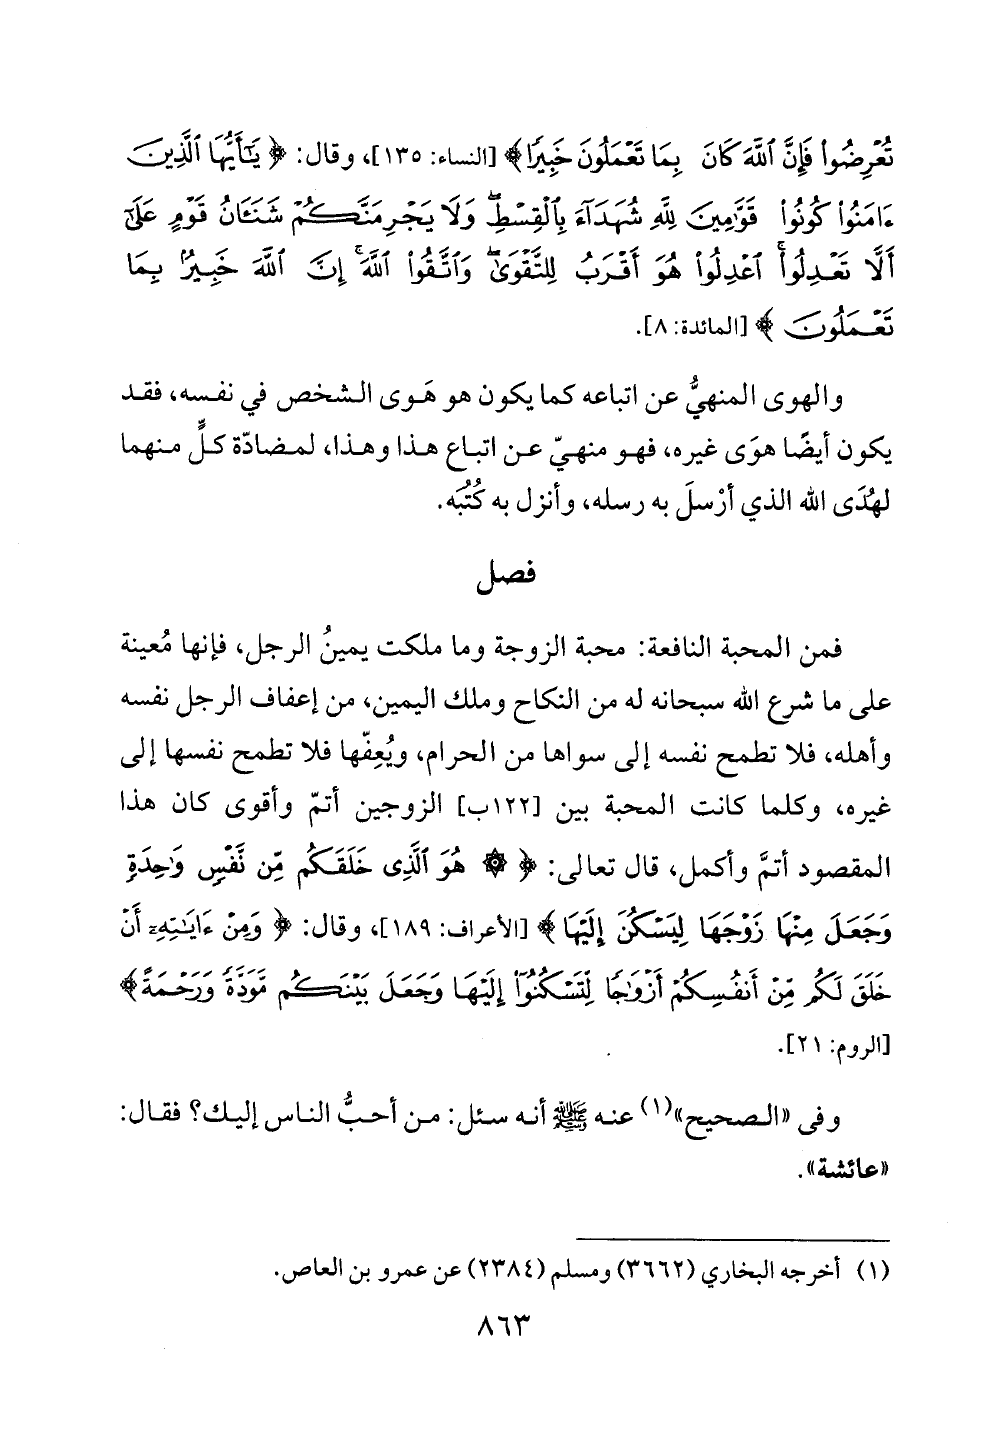 تُعْرِضُوا۟ فَإِنَّ ٱللَّهَ كَانَ بِمَا تَعْمَلُونَ خَبِيرًا﴾ [النساء: ١٣٥]، وقال: ﴿يَٰٓأَيُّهَا ٱلَّذِينَ
ءَامَنُوا۟ كُونُوا۟ قَوَّٰمِينَ لِلَّهِ شُهَدَآءَ بِٱلْقِسْطِ ۖ وَلَا يَجْرِمَنَّكُمْ شَنَـَٔانُ قَوْمٍ عَلَىٰٓ
أَلَّا تَعْدِلُوا۟ ۚ ٱعْدِلُوا۟ هُوَ أَقْرَبُ لِلتَّقْوَىٰ ۖ وَٱتَّقُوا۟ ٱللَّهَ ۚ إِنَّ ٱللَّهَ خَبِيرٌۢ بِمَا
تَعْمَلُونَ﴾ [المائدة: ٨].
والهوى المنهيُّ عن اتباعه كما يكون هو هَوى الشخص في نفسه، فقد
يكون أيضًا هوَى غيره، فهو منهيّ عن اتباع هذا وهذا، لمضادّة كلٍّ منهما
لهُدَى الله الذي أرْسلَ به رسله، وأنزل به كُتُبَه.
فصل
فمن المحبة النافعة: محبة الزوجة وما ملكت يمينُ الرجل، فإنها مُعينة
على ما شرع الله سبحانه له من النكاح وملك اليمين، من إعفاف الرجل نفسه
وأهله، فلا تطمح نفسه إلى سواها من الحرام، ويُعِفّها فلا تطمح نفسها إلى
غيره، وكلما كانت المحبة بين [١٢٢ب] الزوجين أتمّ وأقوى كان هذا
المقصود أتمَّ وأكمل، قال تعالى: ﴿۞ هُوَ ٱلَّذِى خَلَقَكُم مِّن نَّفْسٍ وَٰحِدَةٍ
وَجَعَلَ مِنْهَا زَوْجَهَا لِيَسْكُنَ إِلَيْهَا﴾ [الأعراف: ١٨٩]، وقال: ﴿وَمِنْ ءَايَٰتِهِۦٓ أَنْ
خَلَقَ لَكُم مِّنْ أَنفُسِكُمْ أَزْوَٰجًا لِّتَسْكُنُوٓا۟ إِلَيْهَا وَجَعَلَ بَيْنَكُم مَّوَدَّةً وَرَحْمَةً﴾
[الروم: ٢١].
وفى «الصحيح»(١) عنه ﷺ أنه سئل: من أحبُّ الناس إليك؟ فقال:
«عائشة».
(١) أخرجه البخاري (٣٦٦٢) ومسلم (٢٣٨٤) عن عمرو بن العاص.
٨٦٣